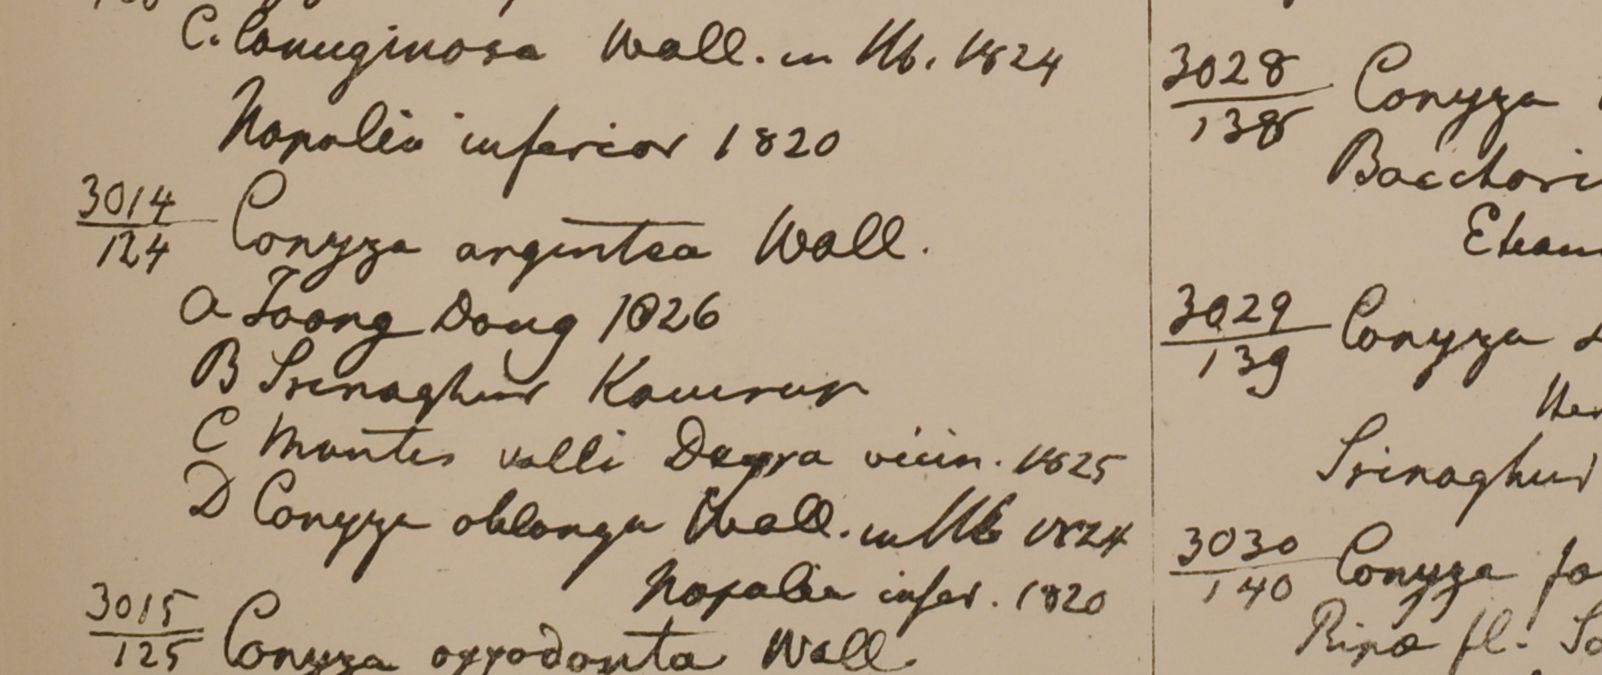 C. lanuginosa Wall. in Hb. 1824
Napalia inferior 1820
3014
124 Conyza argentea Wall.
A Toong Dong 1826
B Srinaghur Kamrup
C Montes valli Deyra vicin. 1825
D Conyza oblonga Wall. in Hb 1824
Napalia infer. 1820
3015
125 Conyza oxyodonta Wall.
3028
138 Conyza
3029
139 Conyza
Srinaghur
3030
140 Conyza
Ripa fl.